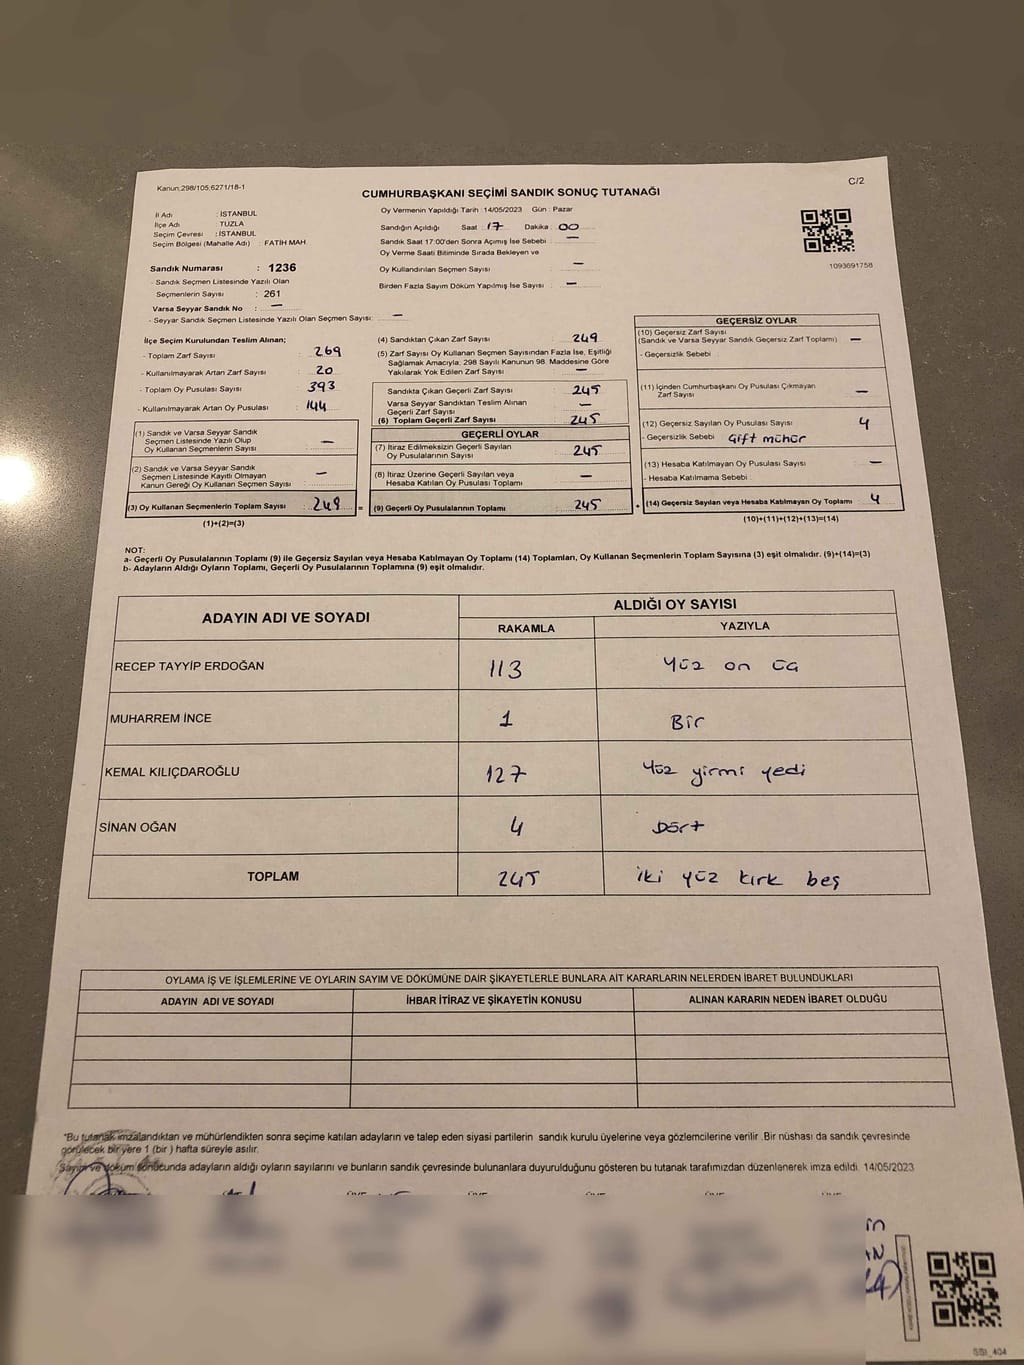 Kanun;298/105;6271/18-1
C/2
CUMHURBAŞKANI SEÇİMİ SANDIK SONUÇ TUTANAĞI
İl Adı : İSTANBUL
İlçe Adı : TUZLA
Seçim Çevresi : İSTANBUL
Seçim Bölgesi (Mahalle Adı) : FATİH MAH.
Sandık Numarası : 1236
- Sandık Seçmen Listesinde Yazılı Olan
Seçmenlerin Sayısı : 261
Varsa Seyyar Sandık No : —
- Seyyar Sandık Seçmen Listesinde Yazılı Olan Seçmen Sayısı: —
Oy Vermenin Yapıldığı Tarih :14/05/2023 Gün : Pazar
Sandığın Açıldığı Saat : 17 Dakika : 00
Sandık Saat 17:00'den Sonra Açımış İse Sebebi : —
Oy Verme Saati Bitiminde Sırada Bekleyen ve
Oy Kullandırılan Seçmen Sayısı : —
Birden Fazla Sayım Döküm Yapılmış İse Sayısı : —
1093691758
İlçe Seçim Kurulundan Teslim Alınan;
- Toplam Zarf Sayısı : 269
- Kullanılmayarak Artan Zarf Sayısı : 20
- Toplam Oy Pusulası Sayısı : 393
- Kullanılmayarak Artan Oy Pusulası : 144
(1) Sandık ve Varsa Seyyar Sandık
Seçmen Listesinde Yazılı Olup
Oy Kullanan Seçmenlerin Sayısı : —
(2) Sandık ve Varsa Seyyar Sandık
Seçmen Listesinde Kayıtlı Olmayan
Kanun Gereği Oy Kullanan Seçmen Sayısı : —
(3) Oy Kullanan Seçmenlerin Toplam Sayısı : 249
(1)+(2)=(3)
(4) Sandıktan Çıkan Zarf Sayısı : 249
(5) Zarf Sayısı Oy Kullanan Seçmen Sayısından Fazla İse, Eşitliği
Sağlamak Amacıyla; 298 Sayılı Kanunun 98. Maddesine Göre
Yakılarak Yok Edilen Zarf Sayısı : —
Sandıkta Çıkan Geçerli Zarf Sayısı : 245
Varsa Seyyar Sandıktan Teslim Alınan
Geçerli Zarf Sayısı : —
(6) Toplam Geçerli Zarf Sayısı : 245
GEÇERLİ OYLAR
(7) İtiraz Edilmeksizin Geçerli Sayılan
Oy Pusulalarının Sayısı : 245
(8) İtiraz Üzerine Geçerli Sayılan veya
Hesaba Katılan Oy Pusulası Toplamı : —
= (9) Geçerli Oy Pusulalarının Toplamı : 245
GEÇERSİZ OYLAR
(10) Geçersiz Zarf Sayısı
(Sandık ve Varsa Seyyar Sandık Geçersiz Zarf Toplamı) —
- Geçersizlik Sebebi :
(11) İçinden Cumhurbaşkanı Oy Pusulası Çıkmayan
Zarf Sayısı : —
(12) Geçersiz Sayılan Oy Pusulası Sayısı : 4
- Geçersizlik Sebebi : Çift mühür
(13) Hesaba Katılmayan Oy Pusulası Sayısı : —
- Hesaba Katılmama Sebebi :
+ (14) Geçersiz Sayılan veya Hesaba Katılmayan Oy Toplamı : 4
(10)+(11)+(12)+(13)=(14)
NOT:
a- Geçerli Oy Pusulalarının Toplamı (9) ile Geçersiz Sayılan veya Hesaba Katılmayan Oy Toplamı (14) Toplamları, Oy Kullanan Seçmenlerin Toplam Sayısına (3) eşit olmalıdır. (9)+(14)=(3)
b- Adayların Aldığı Oyların Toplamı, Geçerli Oy Pusulalarının Toplamına (9) eşit olmalıdır.
ADAYIN ADI VE SOYADI
ALDIĞI OY SAYISI
RAKAMLA YAZIYLA
RECEP TAYYİP ERDOĞAN 113 Yüz on üç
MUHARREM İNCE 1 Bir
KEMAL KILIÇDAROĞLU 127 Yüz yirmi yedi
SİNAN OĞAN 4 Dört
TOPLAM 245 iki yüz kırk beş
OYLAMA İŞ VE İŞLEMLERİNE VE OYLARIN SAYIM VE DÖKÜMÜNE DAİR ŞİKAYETLERLE BUNLARA AİT KARARLARIN NELERDEN İBARET BULUNDUKLARI
ADAYIN ADI VE SOYADI İHBAR İTİRAZ VE ŞİKAYETİN KONUSU ALINAN KARARIN NEDEN İBARET OLDUĞU
"Bu tutanak imzalandıktan ve mühürlendikten sonra seçime katılan adayların ve talep eden siyasi partilerin sandık kurulu üyelerine veya gözlemcilerine verilir .Bir nüshası da sandık çevresinde
görülecek bir yere 1 (bir ) hafta süreyle asılır.
Sayım ve döküm sonucunda adayların aldığı oyların sayılarını ve bunların sandık çevresinde bulunanlara duyurulduğunu gösteren bu tutanak tarafımızdan düzenlenerek imza edildi. 14/05/2023
SSI_404